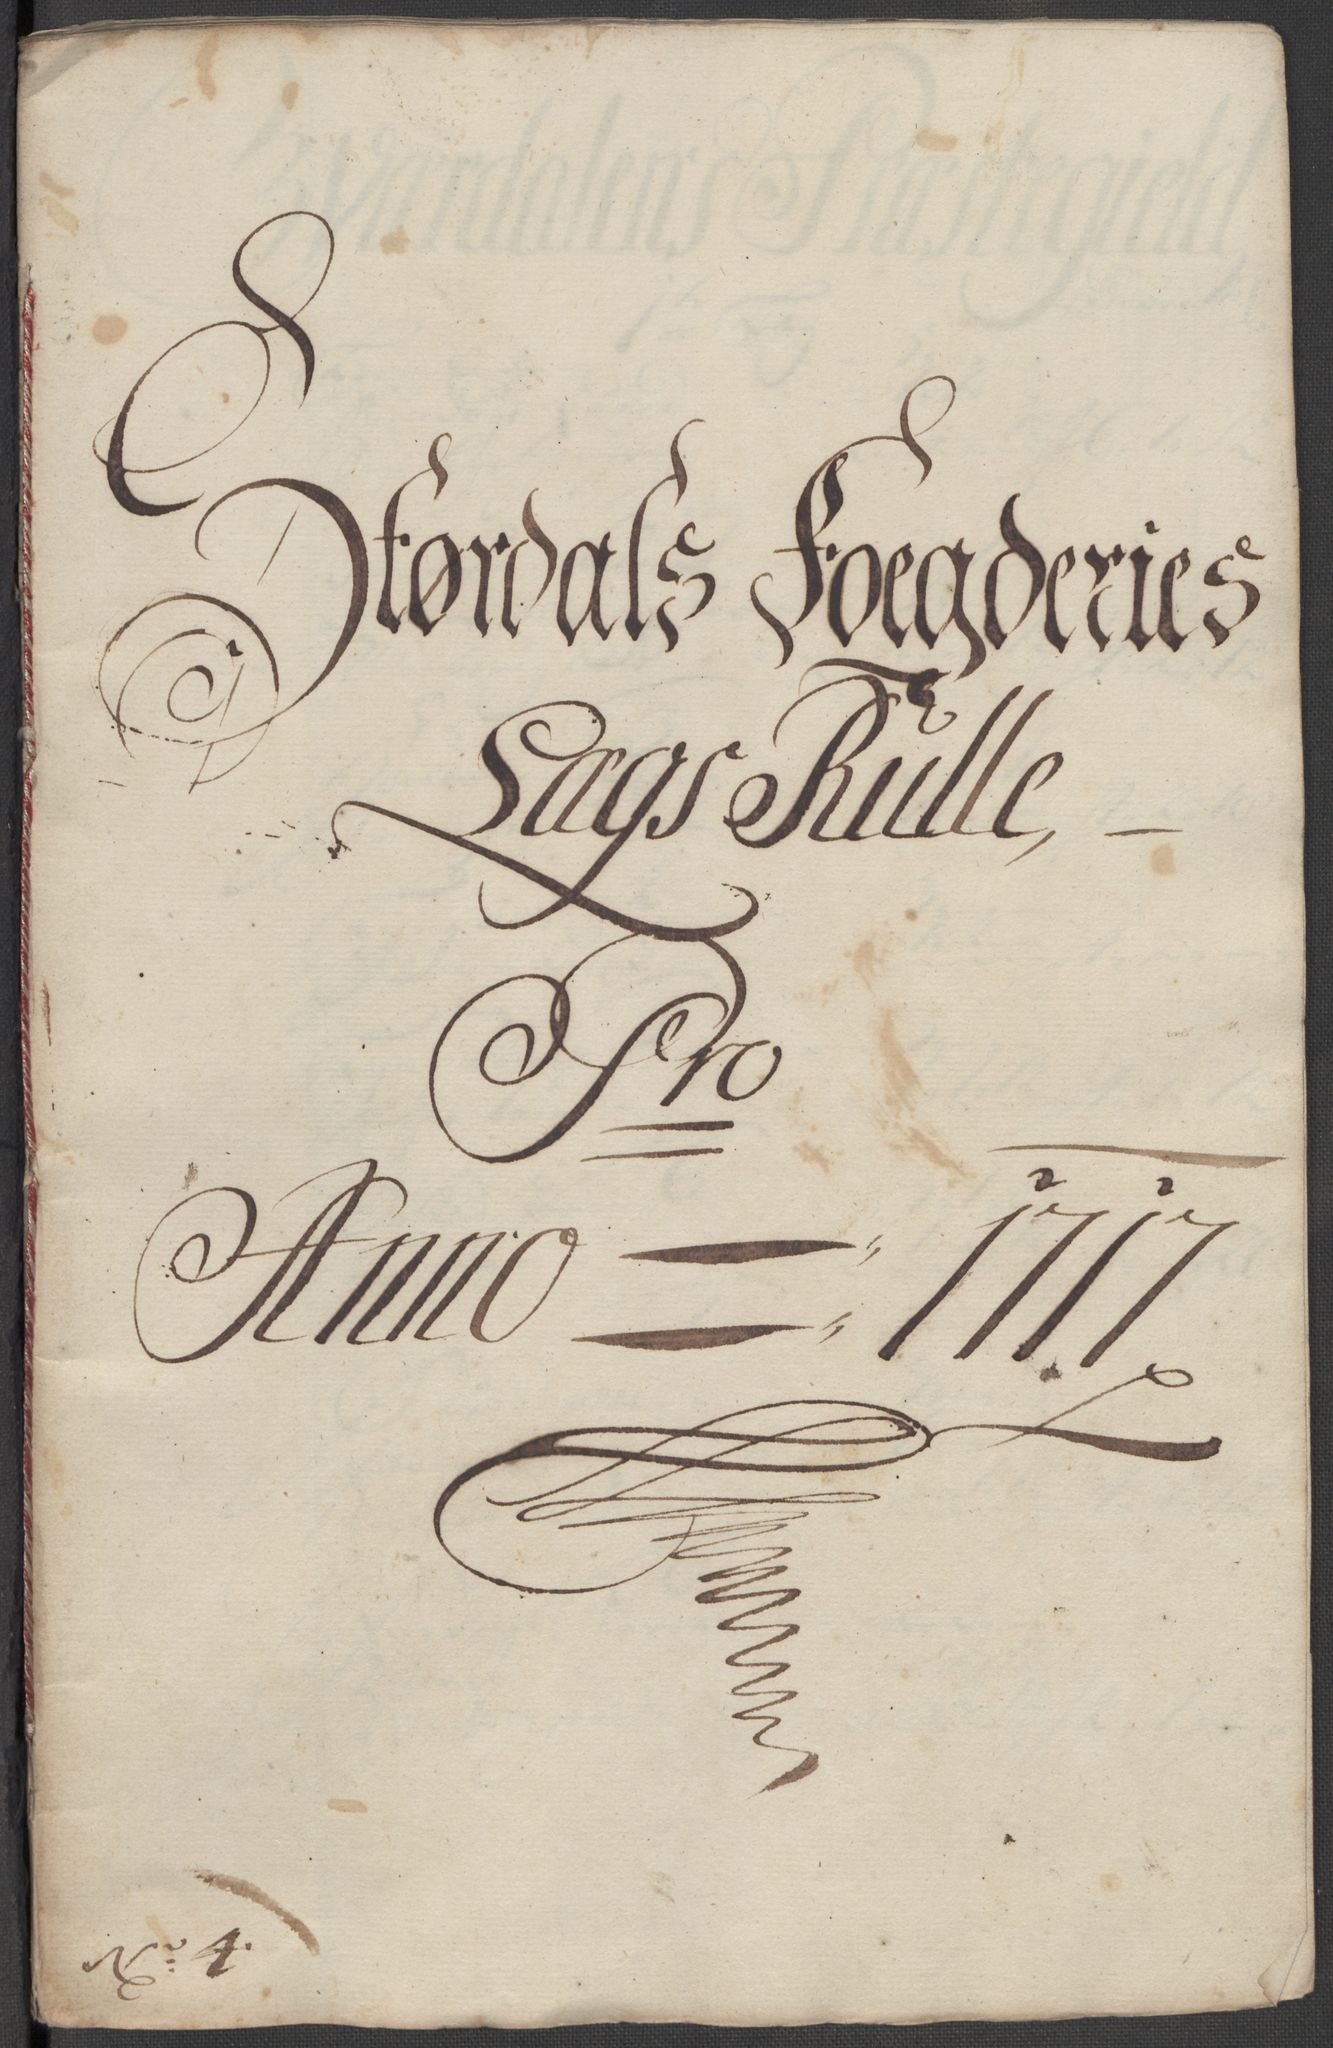 Størdals Foegderies
Lægs Rulle,
Pro
Anno 1717
No 4.